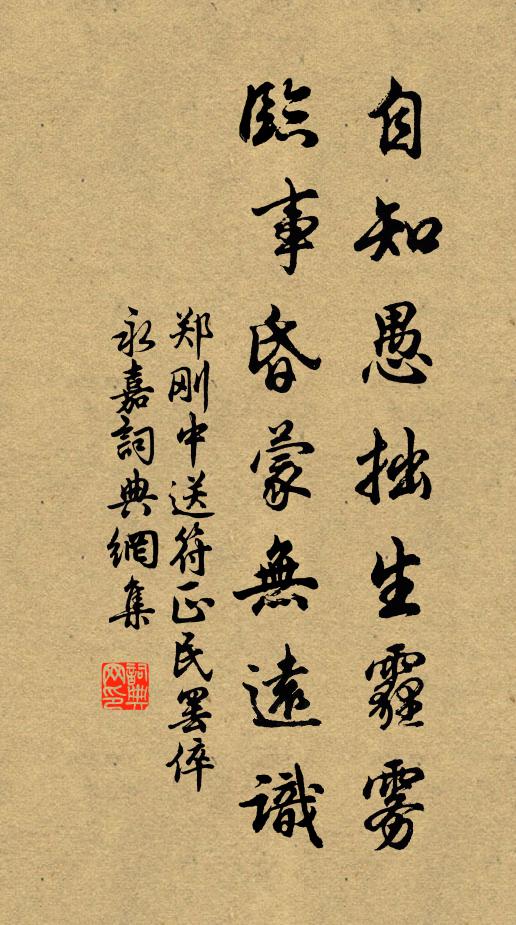 自知愚拙生霾雾
臨事昏蒙無遠識
郑刚中送符正民罢倅
永嘉詞典網集
詞典网印